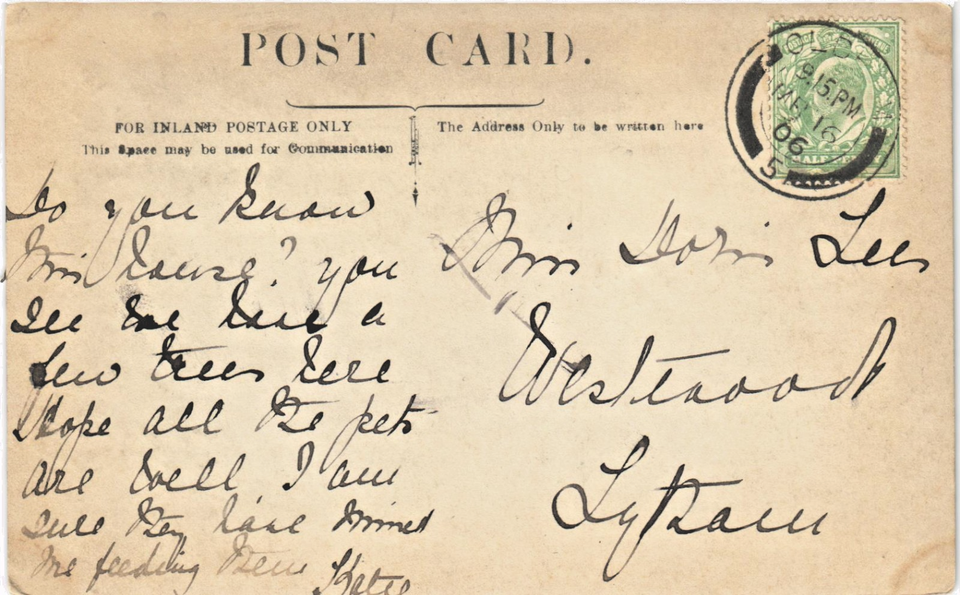 POST CARD.
FOR INLAND POSTAGE ONLY
This Space may be used for Communication
The Address Only to be written here
9.15.PM
16
06
5
HALF
Do you know
this house? you
see we have a
few trees here
Hope all the pets
are well I am
sure they have missed
me feeding them
Katie
Miss Doris Lees
Westwood
Lytham